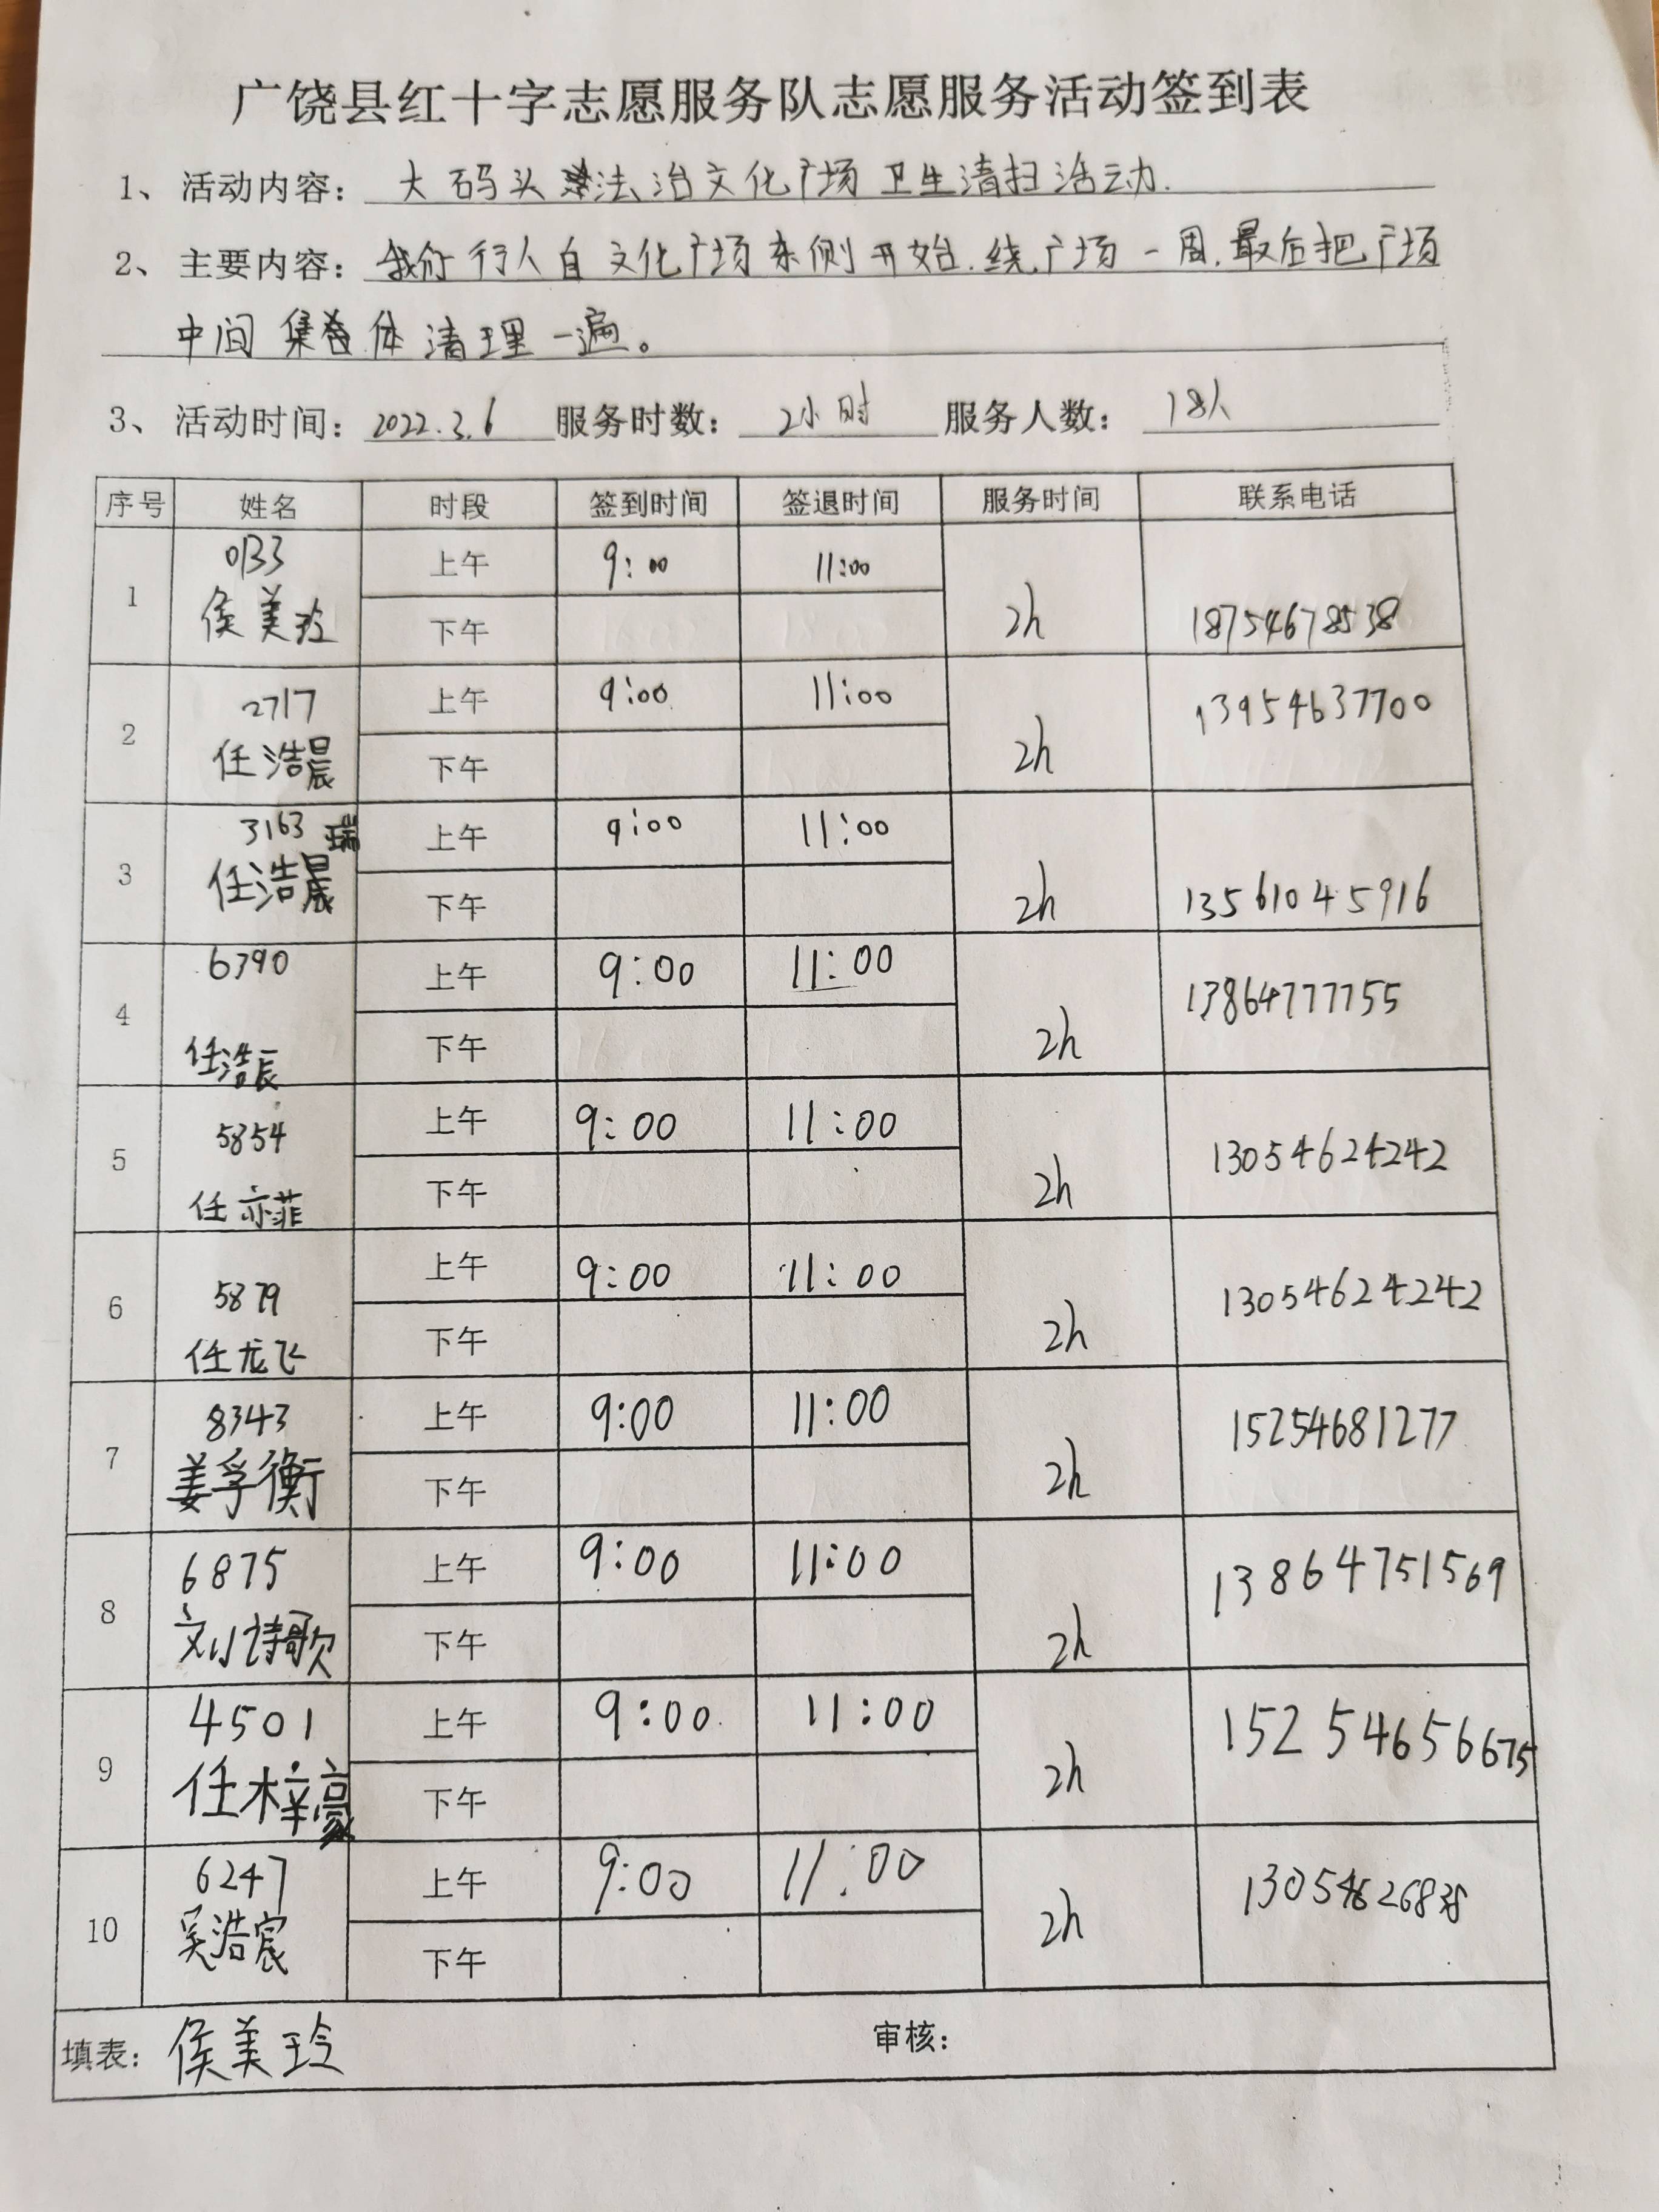 广饶县红十字志愿服务队志愿服务活动签到表
1、活动内容：大码头法治文化广场卫生清扫活动.
2、主要内容：我们一行人自文化广场东侧开始.绕广场一周.最后把广场
中间集体清理一遍。
3、活动时间：2022.3.6 服务时数：2小时 服务人数：18人
序号 姓名 时段 签到时间 签退时间 服务时间 联系电话
1 0133 侯美玲 上午 9:00 11:00 2h 18754678538
下午
2 2717 任浩晨 上午 9:00 11:00 2h 13954637700
下午
3 3163 任浩瑞 上午 9:00 11:00 2h 13561045916
下午
4 6390 任浩辰 上午 9:00 11:00 2h 13864777755
下午
5 5854 任亦菲 上午 9:00 11:00 2h 13054624242
下午
6 5879 任龙飞 上午 9:00 11:00 2h 13054624242
下午
7 8343 姜孚衡 上午 9:00 11:00 2h 15254681277
下午
8 6875 刘诗歌 上午 9:00 11:00 2h 13864751569
下午
9 4501 任梓豪 上午 9:00 11:00 2h 15254656675
下午
10 6247 吴浩宸 上午 9:00 11:00 2h
下午
填表：侯美玲 审核：